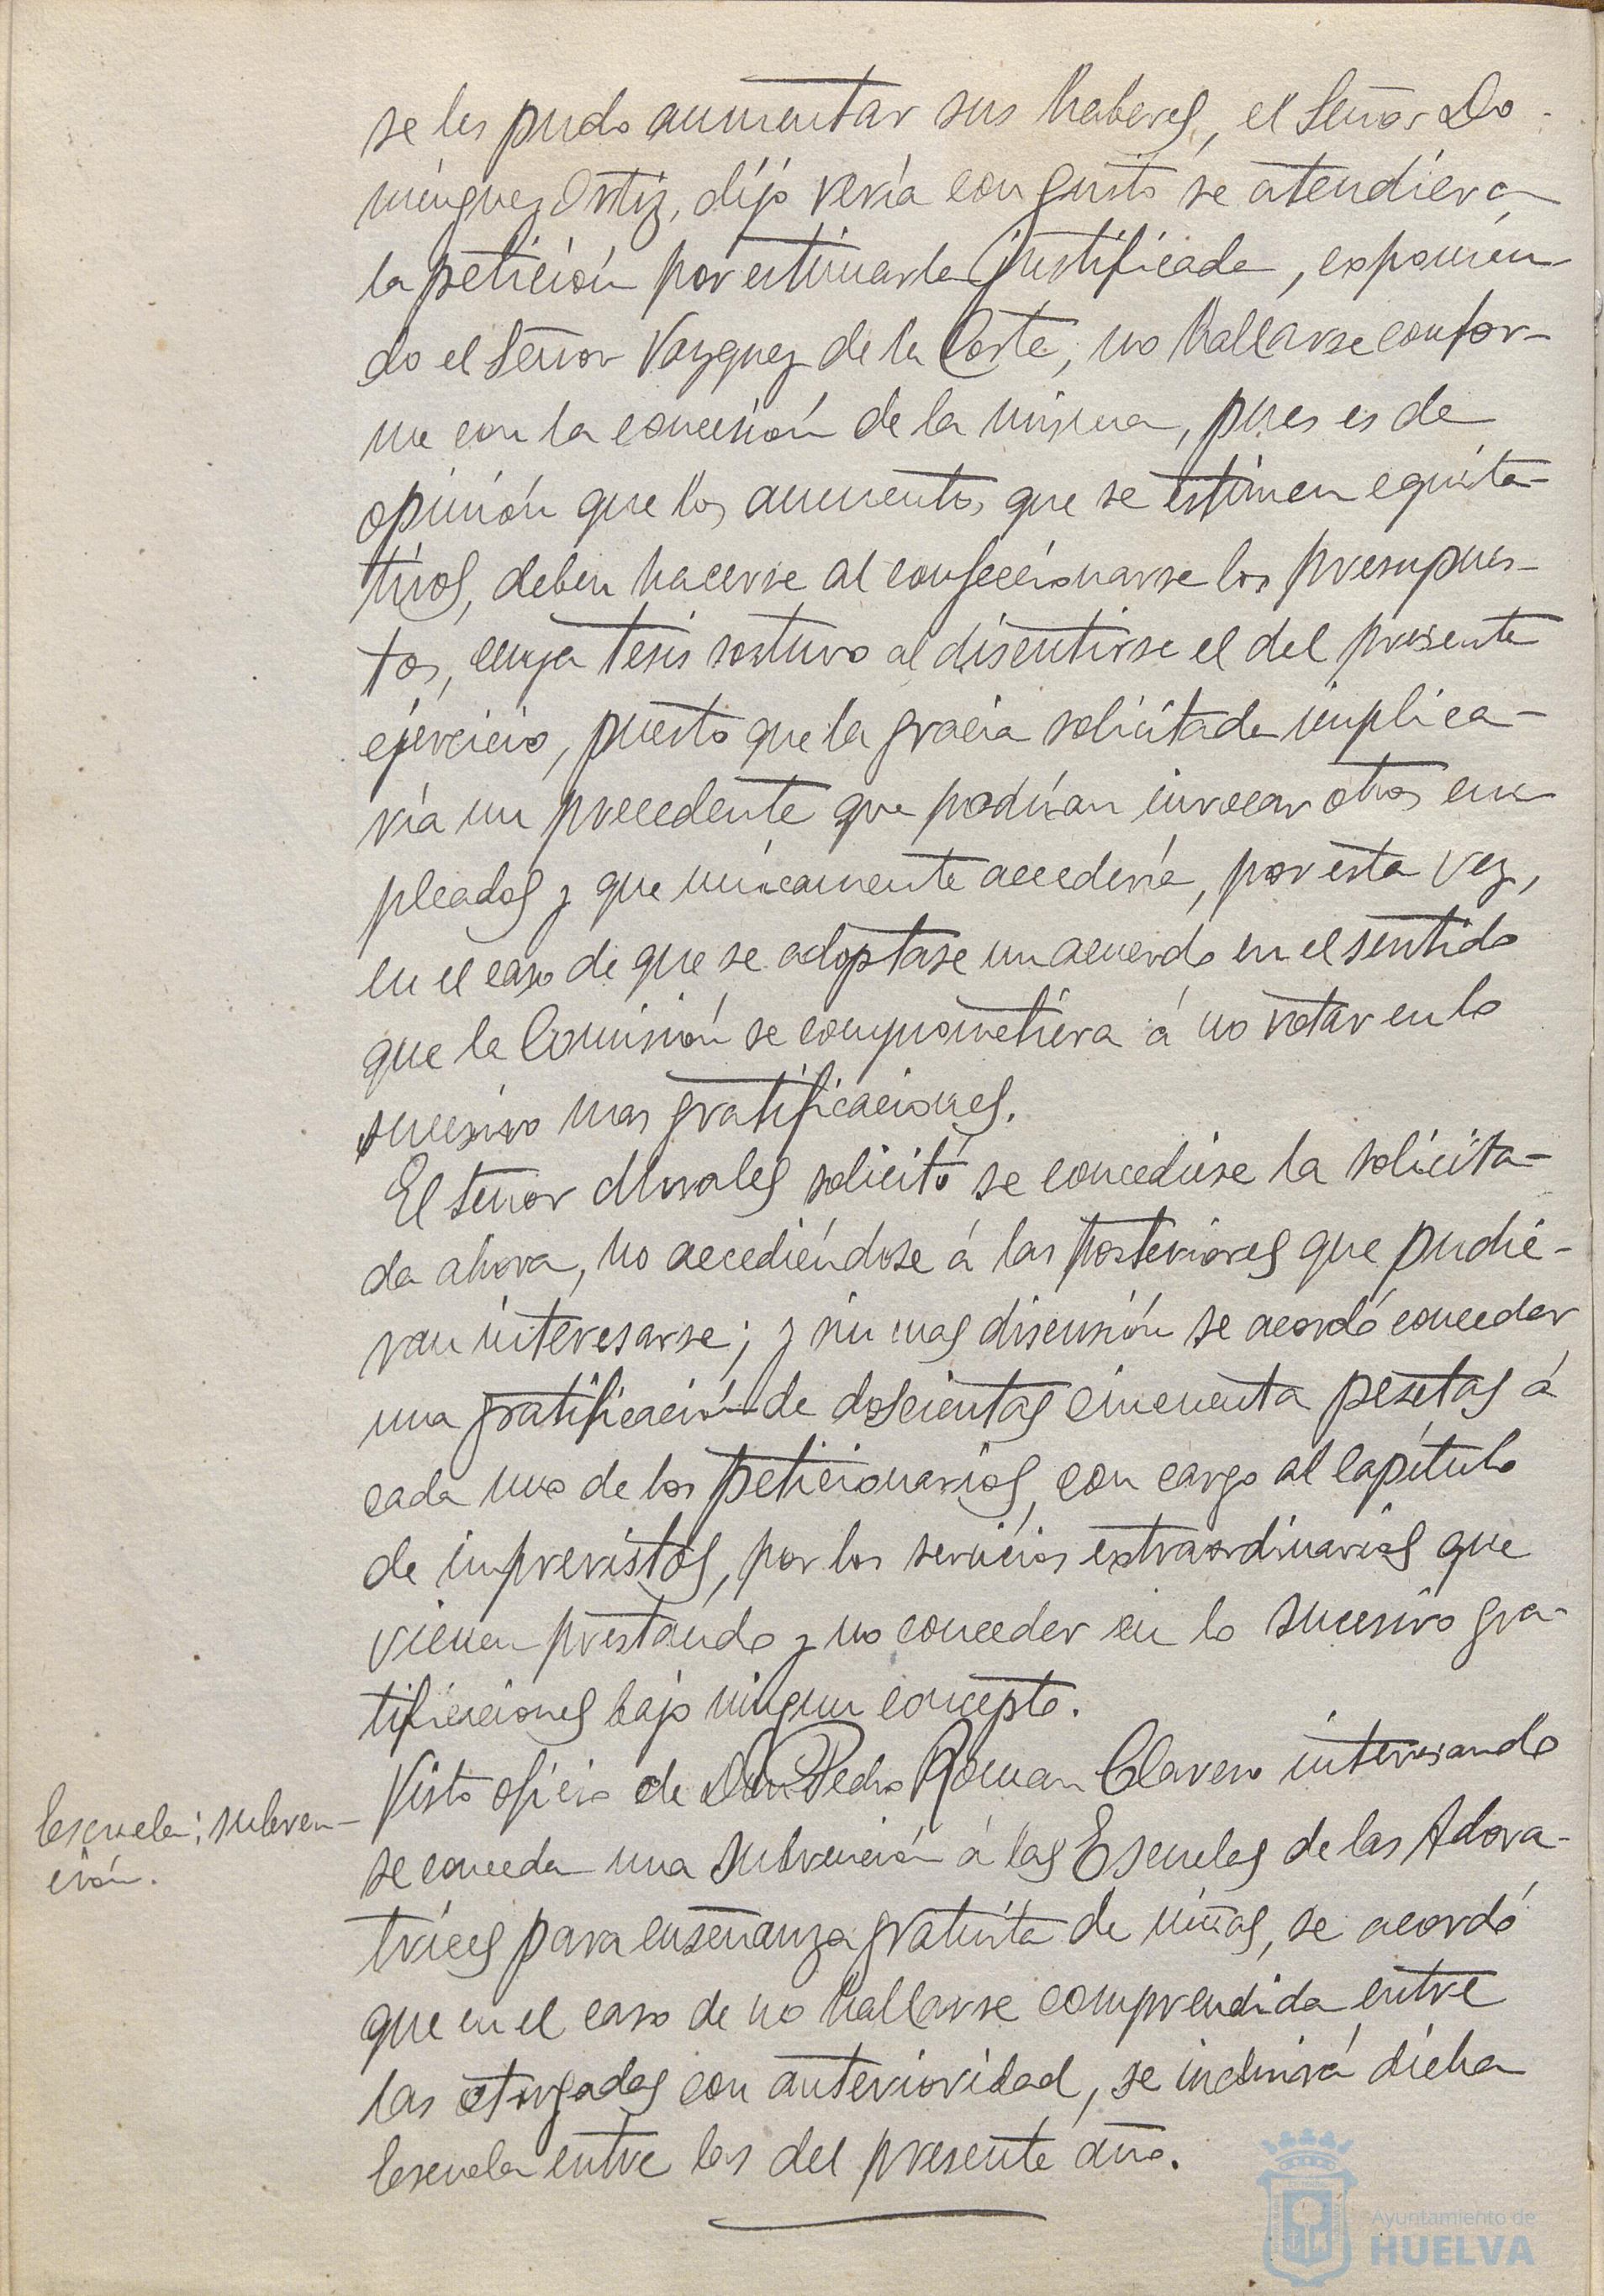 se les pudo aumentar sus haberes, el Señor Do-
minguez Ortiz, dijo vería con gusto se atendiera
la petición por estimarla justificada, exponien-
do el Señor Vazquez de la Corte, no hallarse confor-
me con la concesión de la misma, pues es de
opinión que los aumentos que se estimen equita-
tivos, deben hacerse al confeccionarse los presupues-
tos, cuya tesis sostuvo al discutirse el del presente
ejercicio, puesto que la gracia solicitada implica-
ría un precedente que podrían invocar otros em
pleados y que únicamente accedería, por esta vez,
en el caso de que se adoptase un acuerdo en el sentido
que la Comisión se comprometiera á no votar en lo
sucesivo mas gratificaciones.
El señor Morales solicitó se concediese la solicita-
da ahora, no accediéndose á las posteriores que pudie-
ran interesarse; y sin mas discusión se acordó conceder
una gratificación de doscientas cincuenta pesetas á
cada uno de los peticionarios, con cargo al capítulo
de imprevistos, por los servicios extraordinarios que
vienen prestando y no conceder en lo sucesivo gra-
tificaciones bajo ningun concepto.
Escuela: subven-
ción.
Visto oficio de Don Pedro Roman Clavero interesando
se conceda una subvención á las Escuelas de las Adora-
trices para enseñanza gratuita de niñas, se acordó
que en el caso de no hallarse comprendida entre
las otorgadas con anterioridad, se incluirá dicha
Escuela entre las del presente año.
Ayuntamiento de
HUELVA